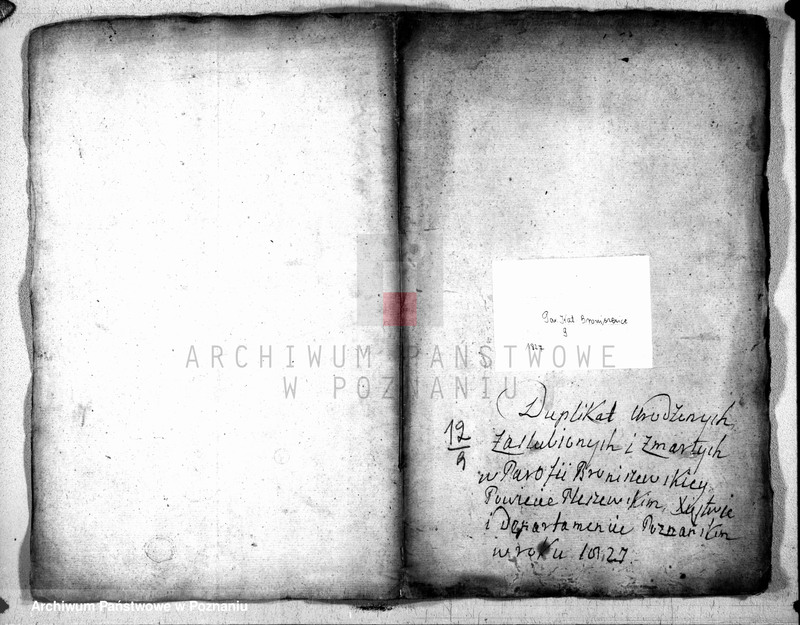 Par. Kat. Broniszewice
9
1827
ARCHIWUM PAŃSTWOWE
W POZNANIU
12
9
Duplikat Urodzonych
Zaslubionych i Zmarłych
w Parafii Broniszewskiey
Powiecie Pleszewskim, Xięstwie
i Departamencie Poznańskim
w roku 1827.
Archiwum Państwowe w Poznaniu